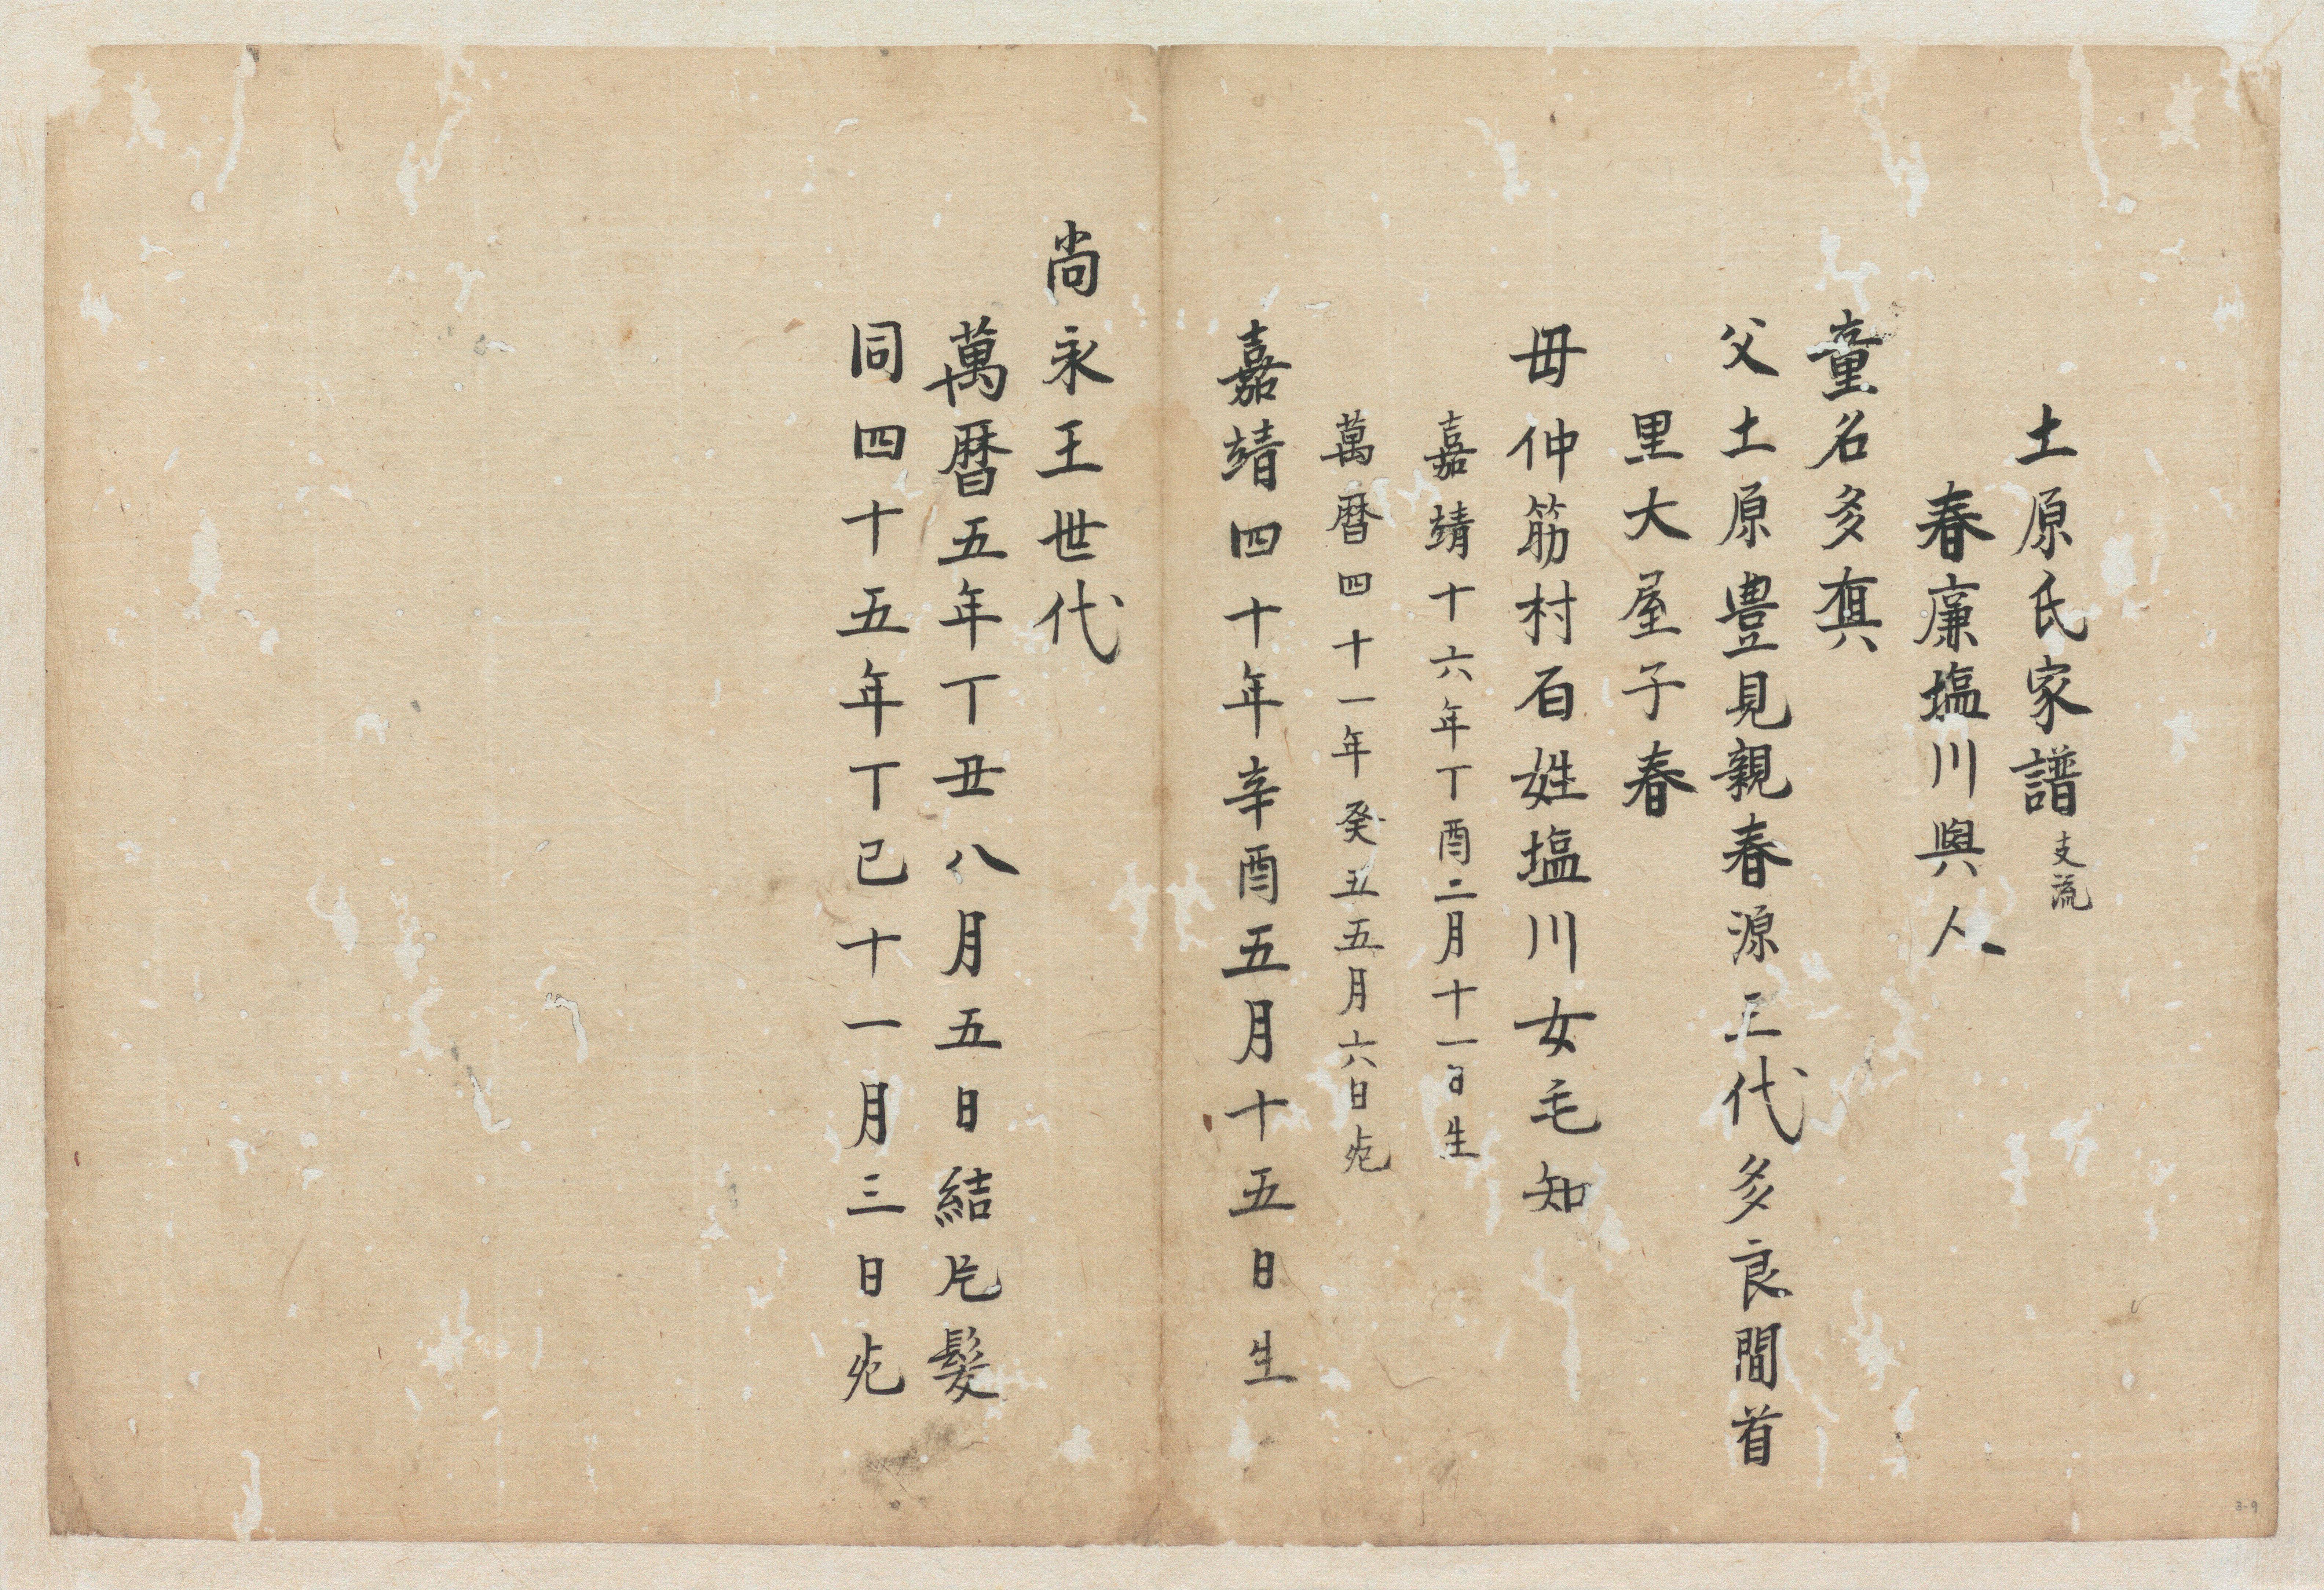 土原氏家譜 支流
春廉塩川與人
童名多真
父土原豊見親春源三代多良間首
里大屋子春
母仲筋村百姓塩川女毛知
嘉靖十六年丁酉二月十一日生
萬暦四十一年癸丑五月六日死
嘉靖四十年辛酉五月十五日生
尚永王世代
萬暦五年丁丑八月五日結片髪
同四十五年丁巳十一月三日死
3-9